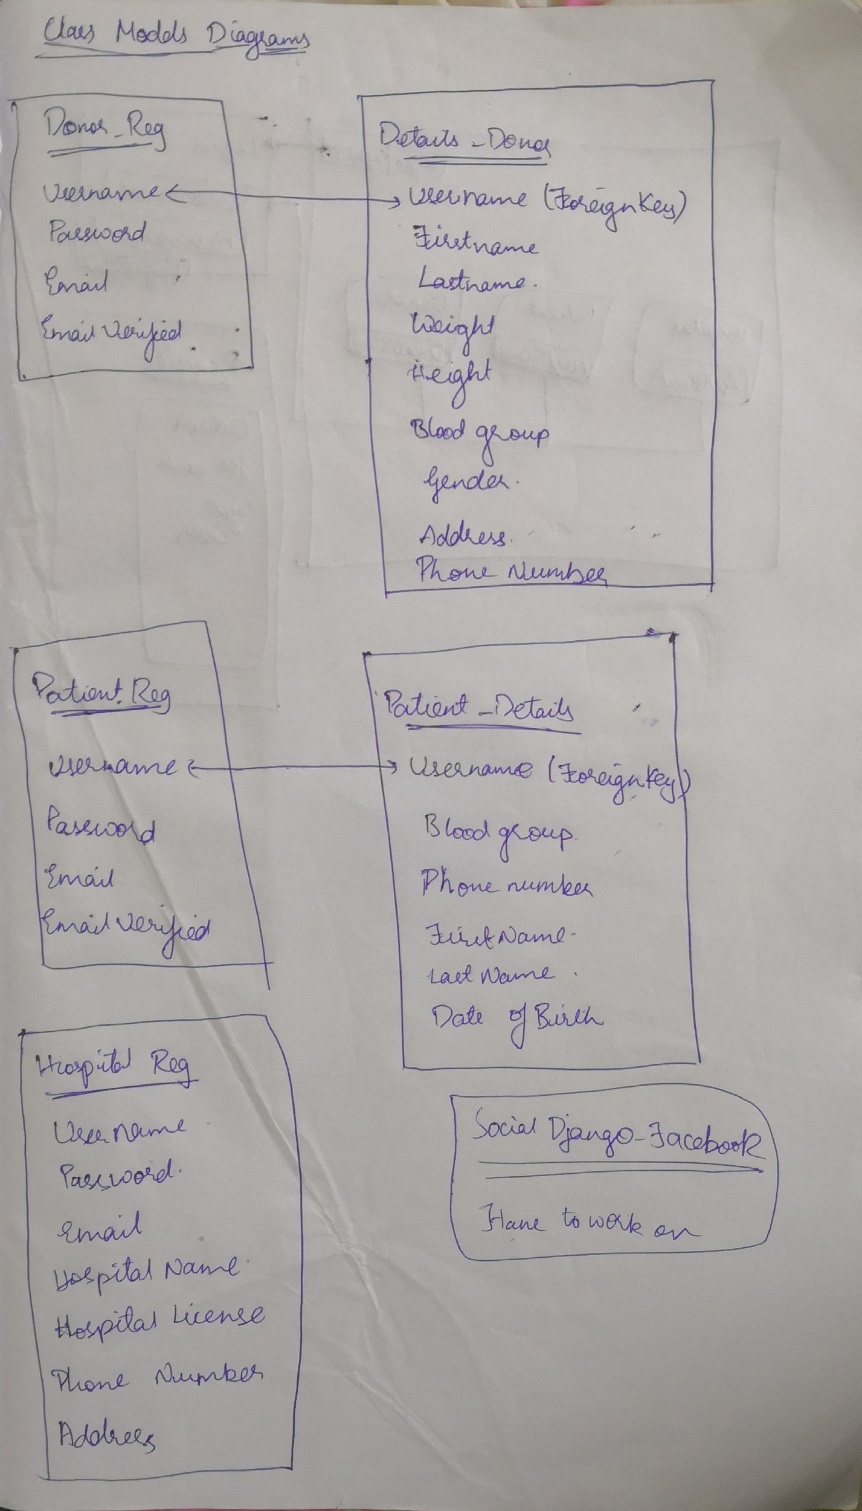 Class Models Diagrams
Donor_Reg
Username
Password
Email
Email Verified
Details_Donor
Username (Foreign Key)
Firstname
Lastname.
Weight
Height
Blood group
Gender.
Address.
Phone Number
Patient_Reg
Username
Password
Email
Email Verified
Patient_Details
Username (Foreign Key)
Blood group.
Phone number
First Name.
Last Name.
Date of Birth
Hospital Reg
User Name
Password.
Email
Hospital Name
Hospital License
Phone Number
Address
Social Django-Facebook
Have to work on